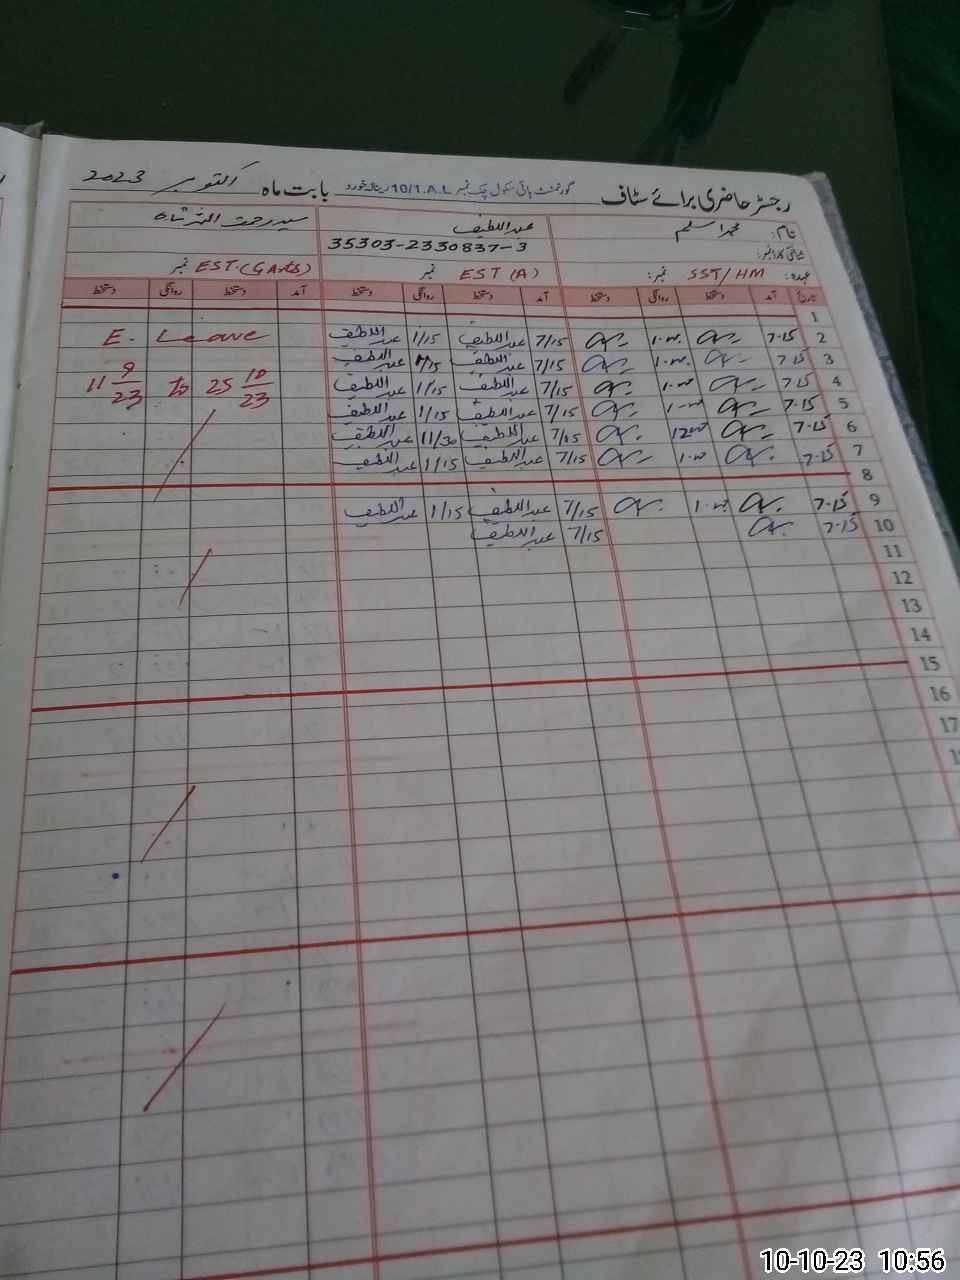 رجسٹر حاضری برائے سٹاف گورنمنٹ ہائی سکول چک نمبر 10/1.A.L رینالہ خورد بابت ماہ اکتوبر 2023
نام: محمد اسلم عبداللطیف سید رحمت اللہ شاہ
شناختی کارڈ نمبر: 35303-2330837-3
عہدہ: SST/HM نمبر: EST (A) نمبر EST.(G Arts) نمبر
تاریخ آمد دستخط روانگی دستخط آمد دستخط روانگی دستخط آمد دستخط روانگی دستخط
1
2 7-15 1-00 7/15 عبداللطیف 1/15 عبداللطیف E. Leave
3 7-15 1-00 7/15 عبداللطیف 1/15 عبداللطیف
4 7-15 1-00 7/15 عبداللطیف 1/15 عبداللطیف 11 9/23 to 25 10/23
5 7-15 1-00 7/15 عبداللطیف 1/15 عبداللطیف
6 7-15 1200 7/15 عبداللطیف 11/30 عبداللطیف
7 7-15 1-00 7/15 عبداللطیف 1/15 عبداللطیف
8
9 7-15 1-00 7/15 عبداللطیف 1/15 عبداللطیف
10 7-15 7/15 عبداللطیف
11
12
13
14
15
16
17
10-10-23 10:56